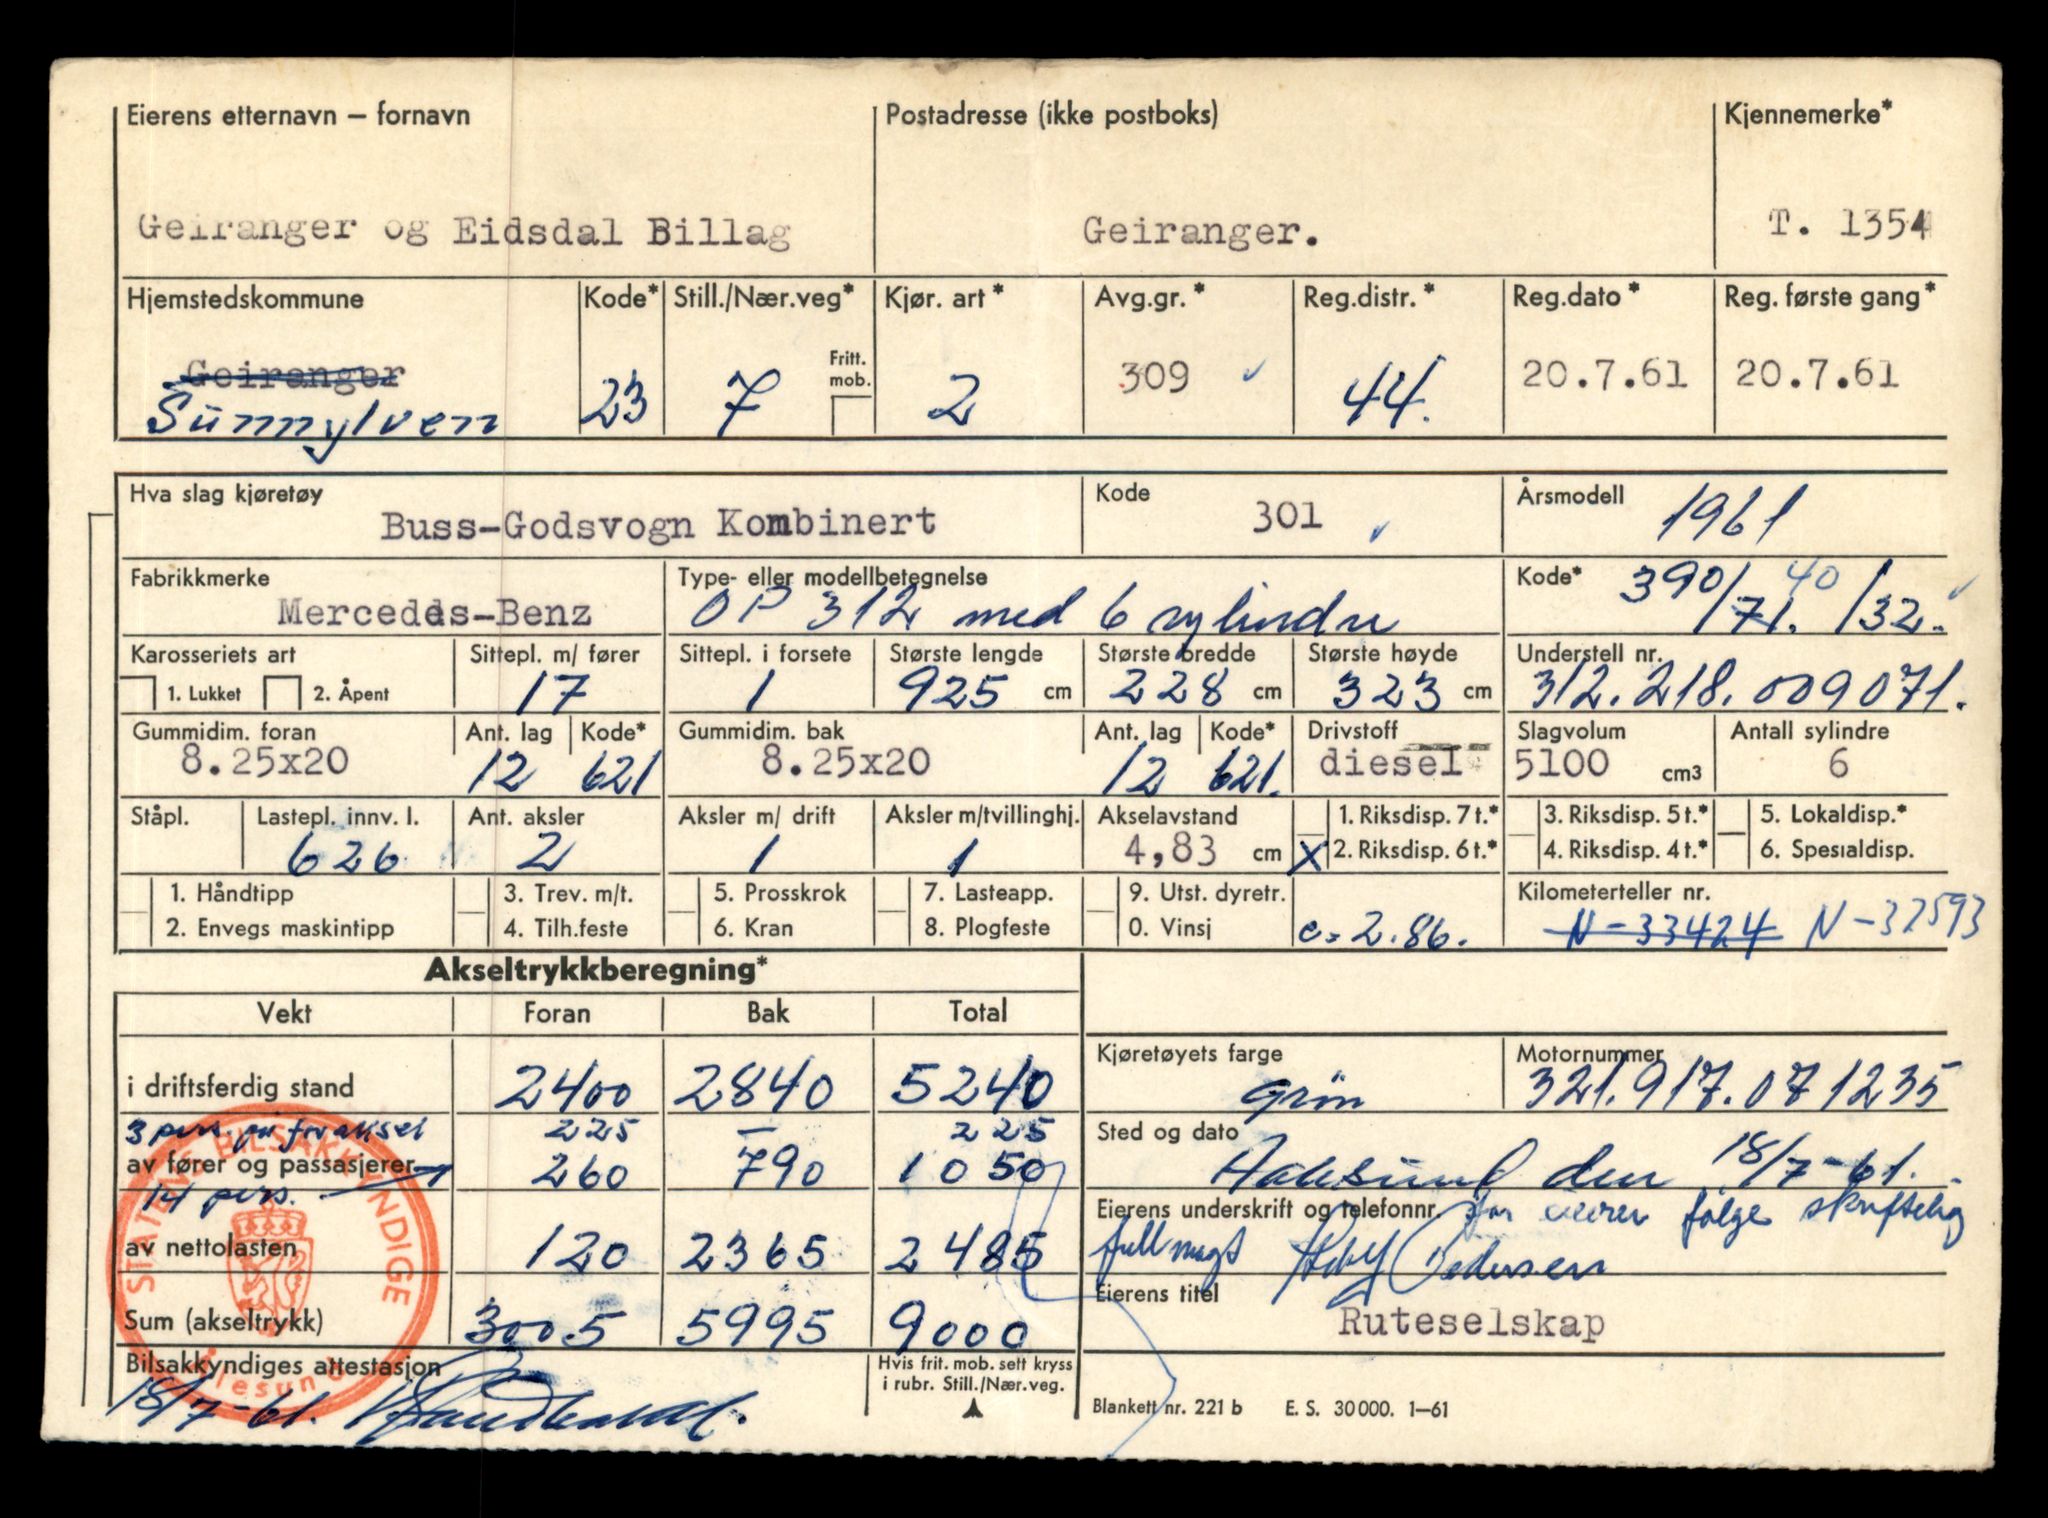 Eierens etternavn – fornavn Postadresse (ikke postboks) Kjennemerke*
Geiranger og Eidsdal Billag Geiranger. T. 1354
Hjemstedskommune Kode* Still./Nær.veg* Kjør. art* Avg.gr.* Reg.distr.* Reg.dato* Reg. første gang*
Geiranger Fritt. mob. 309 20.7.61 20.7.61
Sunnylven 23 7 2 44.
Hva slag kjøretøy Kode Årsmodell
Buss-Godsvogn Kombinert 301 1961
Fabrikkmerke Type- eller modellbetegnelse Kode* 390/71. 40/32.
Mercedes-Benz OP 312 med 6 sylindre
Karosseriets art Sittepl. m/ fører Sittepl. i forsete Største lengde Største bredde Største høyde Understell nr.
1. Lukket 2. Åpent 17 1 925 cm 228 cm 323 cm 312.218.009071.
Gummidim. foran Ant. lag Kode* Gummidim. bak Ant. lag Kode* Drivstoff Slagvolum Antall sylindre
8.25x20 12 621 8.25x20 12 621. diesel 5100 cm3 6
Ståpl. Lastepl. innv. l. Ant. aksler Aksler m/ drift Aksler m/tvillinghj. Akselavstand 1. Riksdisp. 7 t.* 3. Riksdisp. 5 t.* 5. Lokaldisp.*
626 2 1 1 4,83 cm X 2. Riksdisp. 6 t.* 4. Riksdisp. 4 t.* 6. Spesialdisp.
1. Håndtipp 3. Trev. m/t. 5. Prosskrok 7. Lasteapp. 9. Utst. dyretr. Kilometerteller nr.
2. Envegs maskintipp 4. Tilh.feste 6. Kran 8. Plogfeste 0. Vinsj c=2.86. N-33424 N-32593
Akseltrykkberegning*
Vekt Foran Bak Total
Kjøretøyets farge Motornummer
i driftsferdig stand 2400 2840 5240 Grøn 321.917.071235
3 pers. på foraksel 225 – 225 Sted og dato
av fører og passasjerer 260 790 1050 Aalesund den 18/7-61.
14 pers.
Eierens underskrift og telefonnr. for eieren følge skriftelig
av nettolasten 120 2365 2485 fullmagt Pedersen
Eierens titel
Sum (akseltrykk) 3005 5995 9000 Ruteselskap
Bilsakkyndiges attestasjon Hvis frit. mob. sett kryss
i rubr. Still./Nær.veg.
18/7-61.
Blankett nr. 221 b E. S. 30 000. 1–61
STATENS BILSAKKYNDIGE
Ålesund